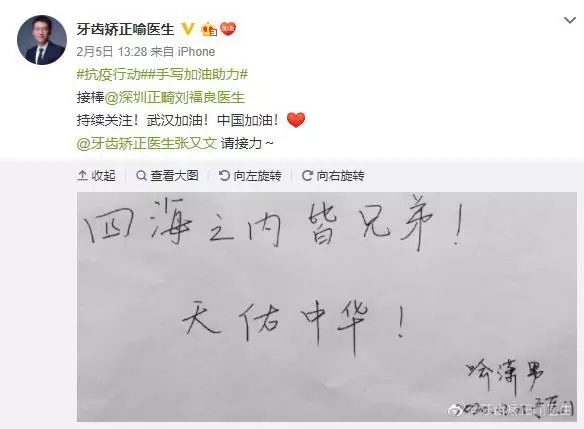 牙齿矫正喻医生
2月5日 13:28 来自 iPhone
#抗疫行动##手写加油助力#
接棒@深圳正畸刘福良医生
持续关注！武汉加油！中国加油！
@牙齿矫正医生张又文 请接力～
收起 查看大图 向左旋转 向右旋转
四海之内皆兄弟！
天佑中华！
喻潇男
@牙齿矫正喻医生